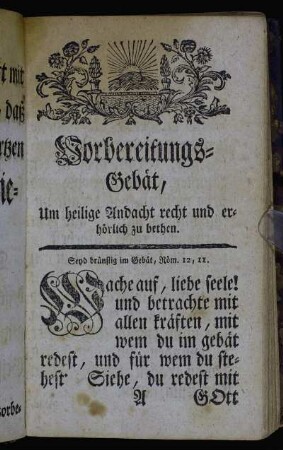 rt mit
, daß
rtzen
ie-
orbe-
Vorbereitungs-
Gebät,
Um heilige Andacht recht und er-
hörlich zu bethen.
Seyd brünstig im Gebät, Röm. 12, 11.
Wache auf, liebe seele!
und betrachte mit
allen kräften, mit
wem du im gebät
redest, und für wem du ste-
hest Siehe, du redest mit
A GOtt